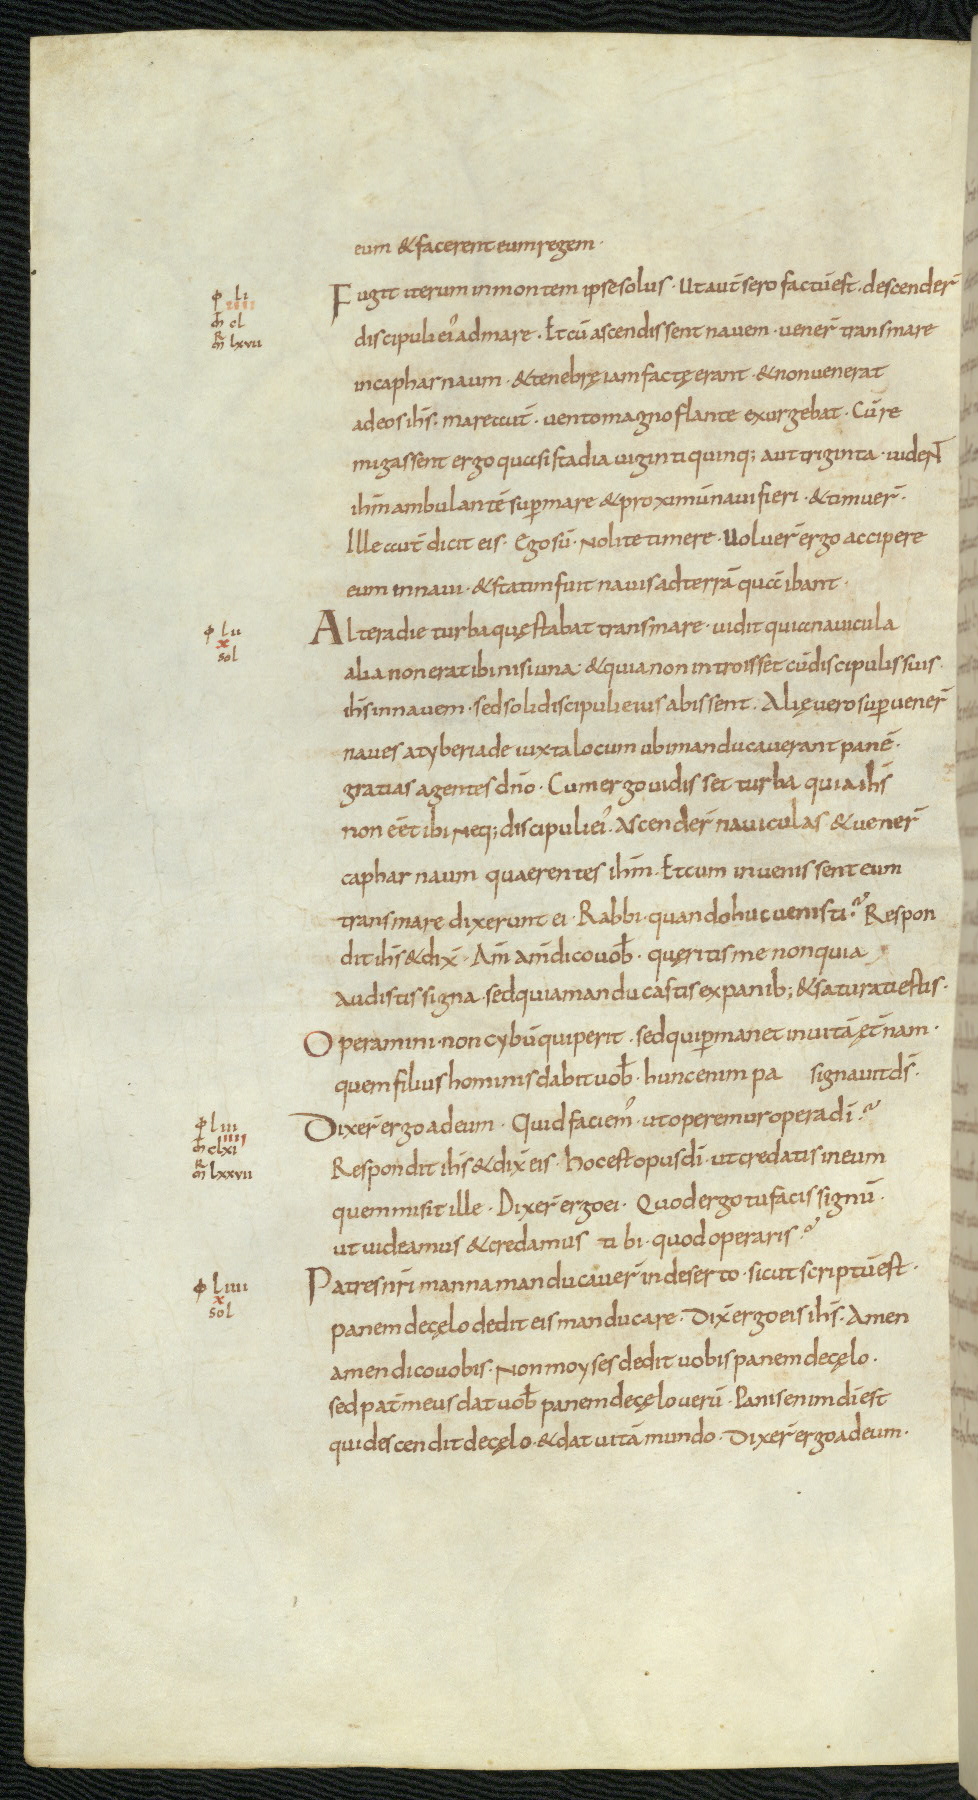 eum & facerent eum regem ·
ϕ li
iiii
m̄ cl
m̄ lxvii
Fugit iterum in montem ipse solus · Ut aut̄ sero factū est · descender̄
discipuli ei᾿ ad mare · Et cū ascendissent navem · vener̄ trans mare
in capharnaum · & tenebrę iam factę erant · & non venerat
ad eos ih̄s · mare aut̄ · vento magno flante exurgebat · Cū re
migassent ergo quasi stadia viginti quinq; aut triginta · vider̄t
ih̄m ambulantē sup̄ mare & proximū navi fieri · & timuer̄ ·
Ille aut̄ dicit eis · Ego sū · Nolite timere · Voluer̄ ergo accipere
eum in navi · & statim fuit navis ad terrā qua ibant ·
ϕ lii
x
sol
Altera die turba quę stabat trans mare · vidit quia navicula
alia non erat ibi nisi una · & quia non introisset cū discipulis suis
ih̄s in navem · sed soli discipuli eius abissent · Alię vero sup̄vener̄
naves a tyberiade iuxta locum ubi manducaverant panē ·
gratias agentes dn̄o · Cum ergo vidisset turba quia ih̄s
non eēt ibi Neq; discipuli ei᾿ · Ascender̄ naviculas & vener̄
capharnaum quaerentes ih̄m · Et cum invenissent eum
trans mare dixerunt ei · Rabbi · quando huc venisti · Respon
dit ih̄s & dix̄ · Am̄ am̄ dico vob̄ · quęritis me non quia
audistis signa · sed quia manducastis ex panib; & saturati estis ·
Operamini · non cybū qui perit · sed qui p̄manet in vitā ęt̄nam ·
quem filius hominis dabit vob̄ · hunc enim pa signavit ds̄ ·
ϕ liii
iiii
m̄ clxi
m̄ lxxvii
Dixer̄ ergo ad eum · Quid faciem᾿ · ut operemur opera dī ·
Respondit ih̄s & dix̄ eis · hoc est opus dī · ut credatis in eum
quem misit ille · Dixer̄ ergo ei · Quod ergo tu facis signū ·
ut videamus & credamus tibi · quod operaris ·
ϕ liiii
x
sol
Patres nr̄i manna manducaver̄ in deserto · sicut scriptū est ·
panem de cęlo dedit eis manducare · Dix̄ ergo eis ih̄s · Amen
amen dico vobis · Non moyses dedit vobis panem de cęlo ·
sed pat̄ meus dat vob̄ panem de cęlo verū · Panis enim dī est
qui descendit de cęlo · & dat vitā mundo · Dixer̄ ergo ad eum ·